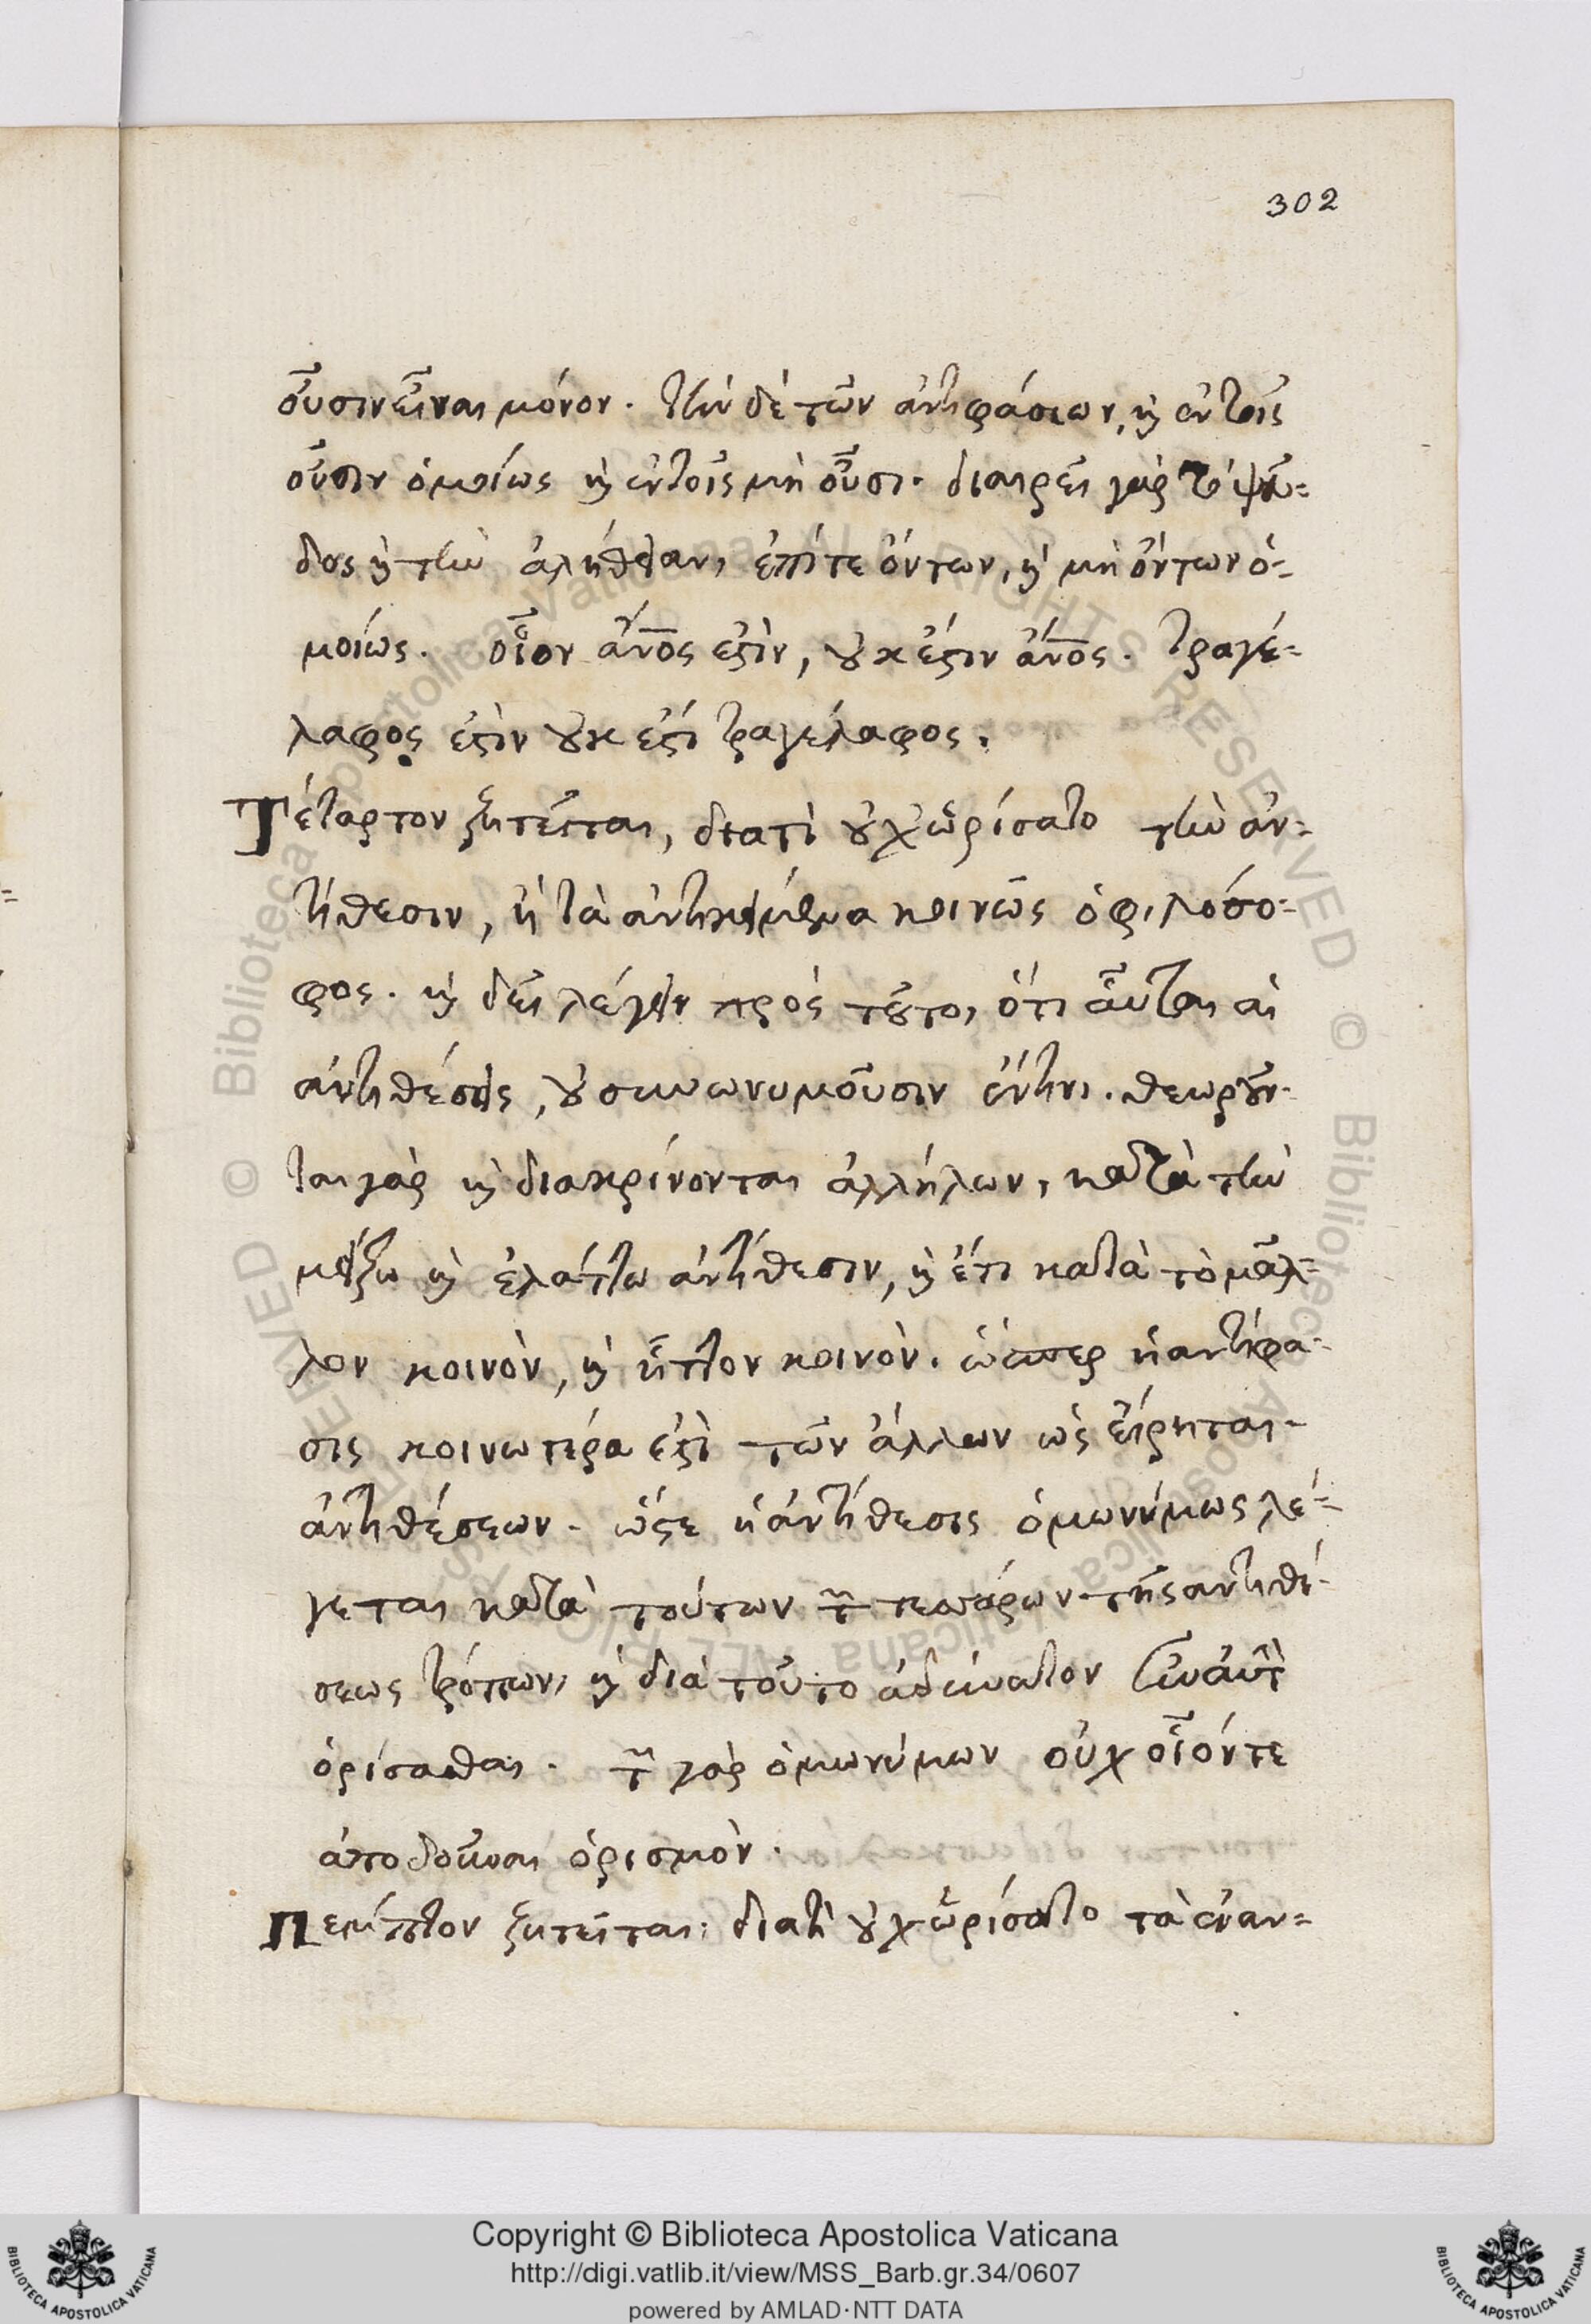 302
οὖσιν εἶναι μόνον. τὴν δὲ τῶν ἀντιφάσεων, καὶ ἐν τοῖς
οὖσιν ὁμοίως καὶ ἐν τοῖς μὴ οὖσι. διαιρεῖ γὰρ τὸ ψεῦ=
δος καὶ τὴν ἀλήθειαν, ἐπί τε ὄντων, καὶ μὴ ὄντων ὁ=
μοίως. οἷον ἄνος ἐστὶν, οὐκ ἔστιν ἄνος. τραγέ=
λαφος ἐστὶν οὐκ ἐστὶ τραγέλαφος.
Τέταρτον ζητεῖται, διατὶ οὐχ ὡρίσατο τὴν ἀν=
τίθεσιν, ἢ τὰ ἀντικείμενα κοινῶς ὁ φιλόσο=
φος. καὶ δεῖ λέγειν πρὸς τοῦτο, ὅτι αὗται αἱ
ἀντιθέσεις, οὐ συνωνυμοῦσιν ἔν τινι. θεωροῦν=
ται γὰρ καὶ διακρίνονται ἀλλήλων, κατὰ τὴν
μείζω καὶ ἐλάττω ἀντίθεσιν, καὶ ἔτι κατὰ τὸ μᾶλ=
λον κοινὸν, καὶ ἧττον κοινὸν. ὥσπερ ἡ αντίφα=
σις κοινωτέρα ἐστὶ τῶν ἄλλων ὡς εἴρηται
ἀντιθέσεων. ὥστε ἡ ἀντίθεσις ὁμωνύμως λέ=
γεται κατὰ τούτων τῶν τεσσάρων τῆς αντιθέ=
σεως τρόπων, καὶ διὰ τοῦτο ἀδύνατον ταύτην
ὁρίσασθαι. τῶν γὰρ ὁμωνύμων οὐχ οἷόντε
ἀποδοῦναι ὁρισμὸν.
Πέμπτον ζητεῖται: διατὶ οὐχ ὡρίσατο τὰ ἐναν=
Copyright © Biblioteca Apostolica Vaticana
http://digi.vatlib.it/view/MSS_Barb.gr.34/0607
powered by AMLAD·NTT DATA